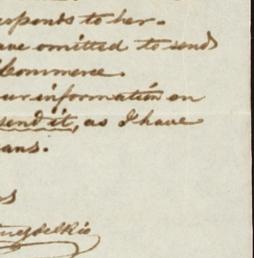 responds to her.
have omitted to send
Commerce.
our information on
send it, as I have
ans.